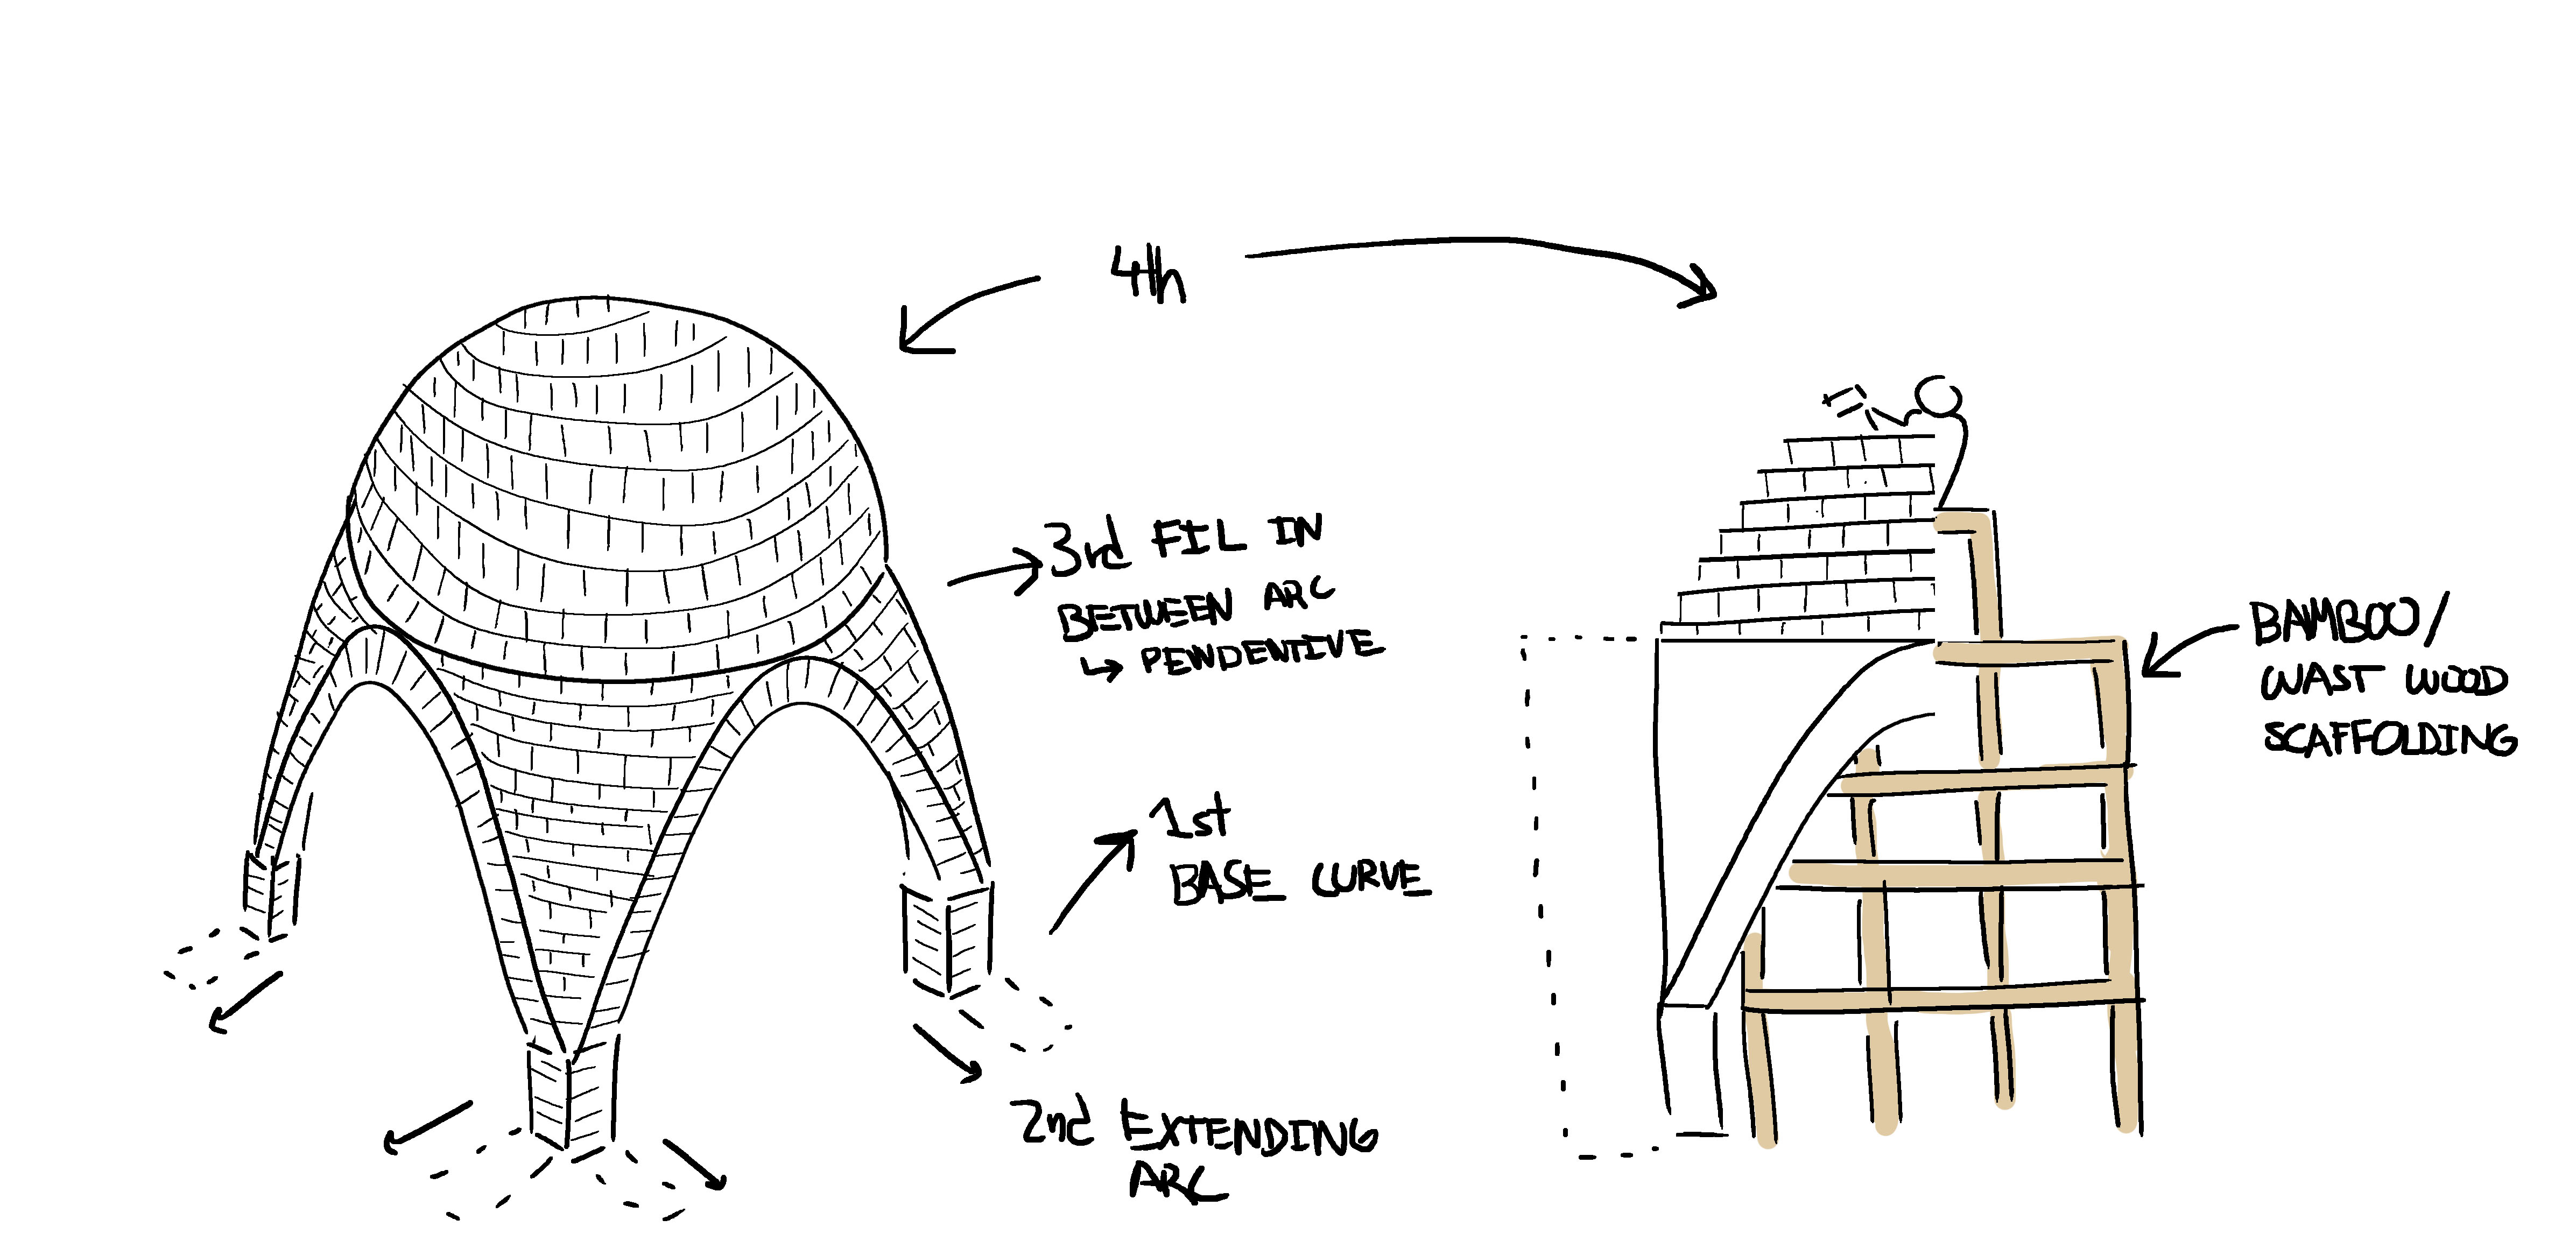 4th
3rd FIL IN
BETWEEN ARC
↳ PENDENTIVE
1st
BASE CURVE
2nd EXTENDING
ARC
BAMBOO/
WAST WOOD
SCAFFOLDING